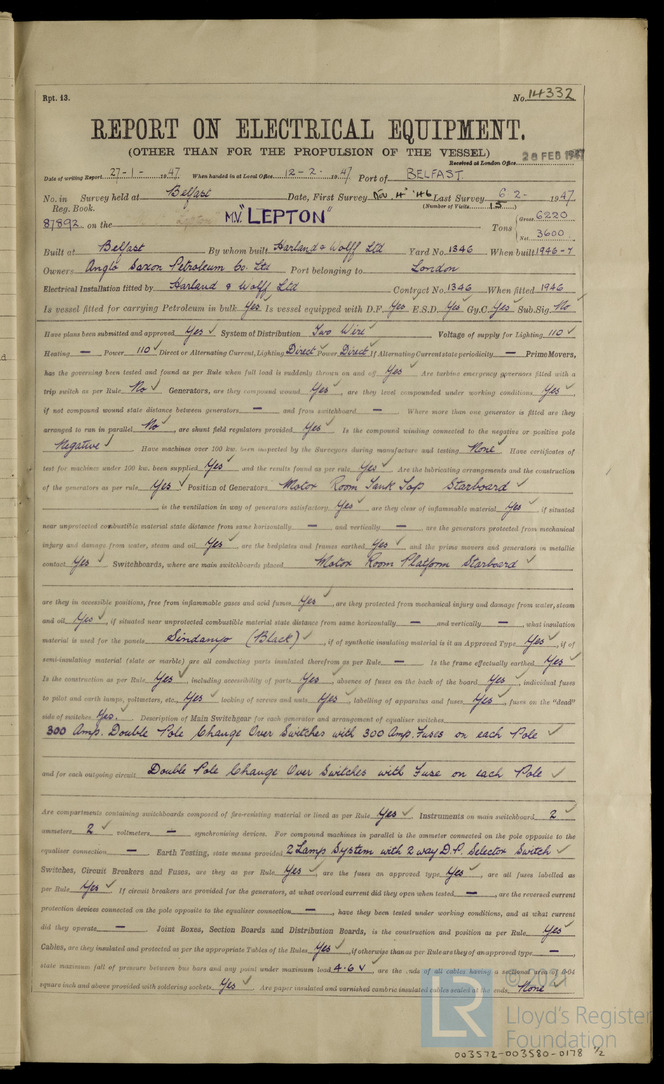 Rpt. 13. No. 14332
REPORT ON ELECTRICAL EQUIPMENT.
(OTHER THAN FOR THE PROPULSION OF THE VESSEL)
Received at London Office 28 FEB 1947
Date of writing Report 27-1- 1947 When handed in at Local Office 12-2- 1947 Port of BELFAST.
No. in Survey held at Belfast Date, First Survey Nov. 4th '46 Last Survey 6-2- 1947
Reg. Book. (Number of Visits 15)
87892 on the MV. "LEPTON" Tons Gross 6220
Net 3600
Built at Belfast By whom built Harland & Wolff Ltd Yard No. 1346 When built 1946-7
Owners Anglo Saxon Petroleum Co. Ltd Port belonging to London
Electrical Installation fitted by Harland & Wolff Ltd Contract No. 1346 When fitted 1946
Is vessel fitted for carrying Petroleum in bulk Yes Is vessel equipped with D.F. Yes E.S.D. Yes Gy.C. Yes Sub.Sig. No
Have plans been submitted and approved Yes ✓ System of Distribution Two Wire ✓ Voltage of supply for Lighting 110 ✓
Heating — Power 110 ✓ Direct or Alternating Current, Lighting Direct ✓ Power Direct ✓ If Alternating Current state periodicity — Prime Movers,
has the governing been tested and found as per Rule when full load is suddenly thrown on and off Yes ✓ Are turbine emergency governors fitted with a
trip switch as per Rule No ✓ Generators, are they compound wound Yes ✓, are they level compounded under working conditions Yes ✓,
if not compound wound state distance between generators — and from switchboard — Where more than one generator is fitted are they
arranged to run in parallel No ✓, are shunt field regulators provided Yes ✓ Is the compound winding connected to the negative or positive pole
Negative ✓ Have machines over 100 kw. been inspected by the Surveyors during manufacture and testing None ✓ Have certificates of
test for machines under 100 kw. been supplied Yes ✓ and the results found as per rule Yes ✓ Are the lubricating arrangements and the construction
of the generators as per rule Yes ✓ Position of Generators Motor Room Tank Top Starboard ✓
, is the ventilation in way of generators satisfactory Yes ✓ are they clear of inflammable material Yes ✓ if situated
near unprotected combustible material state distance from same horizontally — and vertically —, are the generators protected from mechanical
injury and damage from water, steam and oil Yes ✓, are the bedplates and frames earthed Yes ✓ and the prime movers and generators in metallic
contact Yes ✓ Switchboards, where are main switchboards placed Motor Room Platform Starboard ✓
are they in accessible positions, free from inflammable gases and acid fumes Yes ✓, are they protected from mechanical injury and damage from water, steam
and oil Yes ✓, if situated near unprotected combustible material state distance from same horizontally — and vertically —, what insulation
material is used for the panels Sindanyo (Black) ✓, if of synthetic insulating material is it an Approved Type Yes ✓, if of
semi-insulating material (slate or marble) are all conducting parts insulated therefrom as per Rule — Is the frame effectually earthed Yes ✓
Is the construction as per Rule Yes ✓, including accessibility of parts Yes ✓, absence of fuses on the back of the board Yes ✓, individual fuses
to pilot and earth lamps, voltmeters, etc. Yes ✓ locking of screws and nuts Yes ✓, labelling of apparatus and fuses Yes ✓, fuses on the "dead"
side of switches Yes. Description of Main Switchgear for each generator and arrangement of equaliser switches
300 Amp. Double Pole Change Over Switches with 300 Amp. Fuses on each Pole ✓
and for each outgoing circuit Double Pole Change Over Switches with Fuse on each Pole ✓
Are compartments containing switchboards composed of fire-resisting material or lined as per Rule Yes ✓ Instruments on main switchboard 2 ✓
ammeters 2 ✓ voltmeters — synchronising devices. For compound machines in parallel is the ammeter connected on the pole opposite to the
equaliser connection — Earth Testing, state means provided 2 Lamp System with 2 way D.P. Selector Switch ✓
Switches, Circuit Breakers and Fuses, are they as per Rule Yes ✓, are the fuses an approved type Yes ✓, are all fuses labelled as
per Rule Yes ✓ If circuit breakers are provided for the generators, at what overload current did they open when tested —, are the reversed current
protection devices connected on the pole opposite to the equaliser connection —, have they been tested under working conditions, and at what current
did they operate — Joint Boxes, Section Boards and Distribution Boards, is the construction and position as per Rule Yes ✓
Cables, are they insulated and protected as per the appropriate Tables of the Rules Yes ✓, if otherwise than as per Rule are they of an approved type —
state maximum fall of pressure between bus bars and any point under maximum load 4.6 v ✓, are the ends of all cables having a sectional area of 0.04
square inch and above provided with soldering sockets Yes ✓ Are paper insulated and varnished cambric insulated cables sealed at the ends None
© 2021
LR
Lloyd's Register
Foundation
003572-003580-0178 1/2